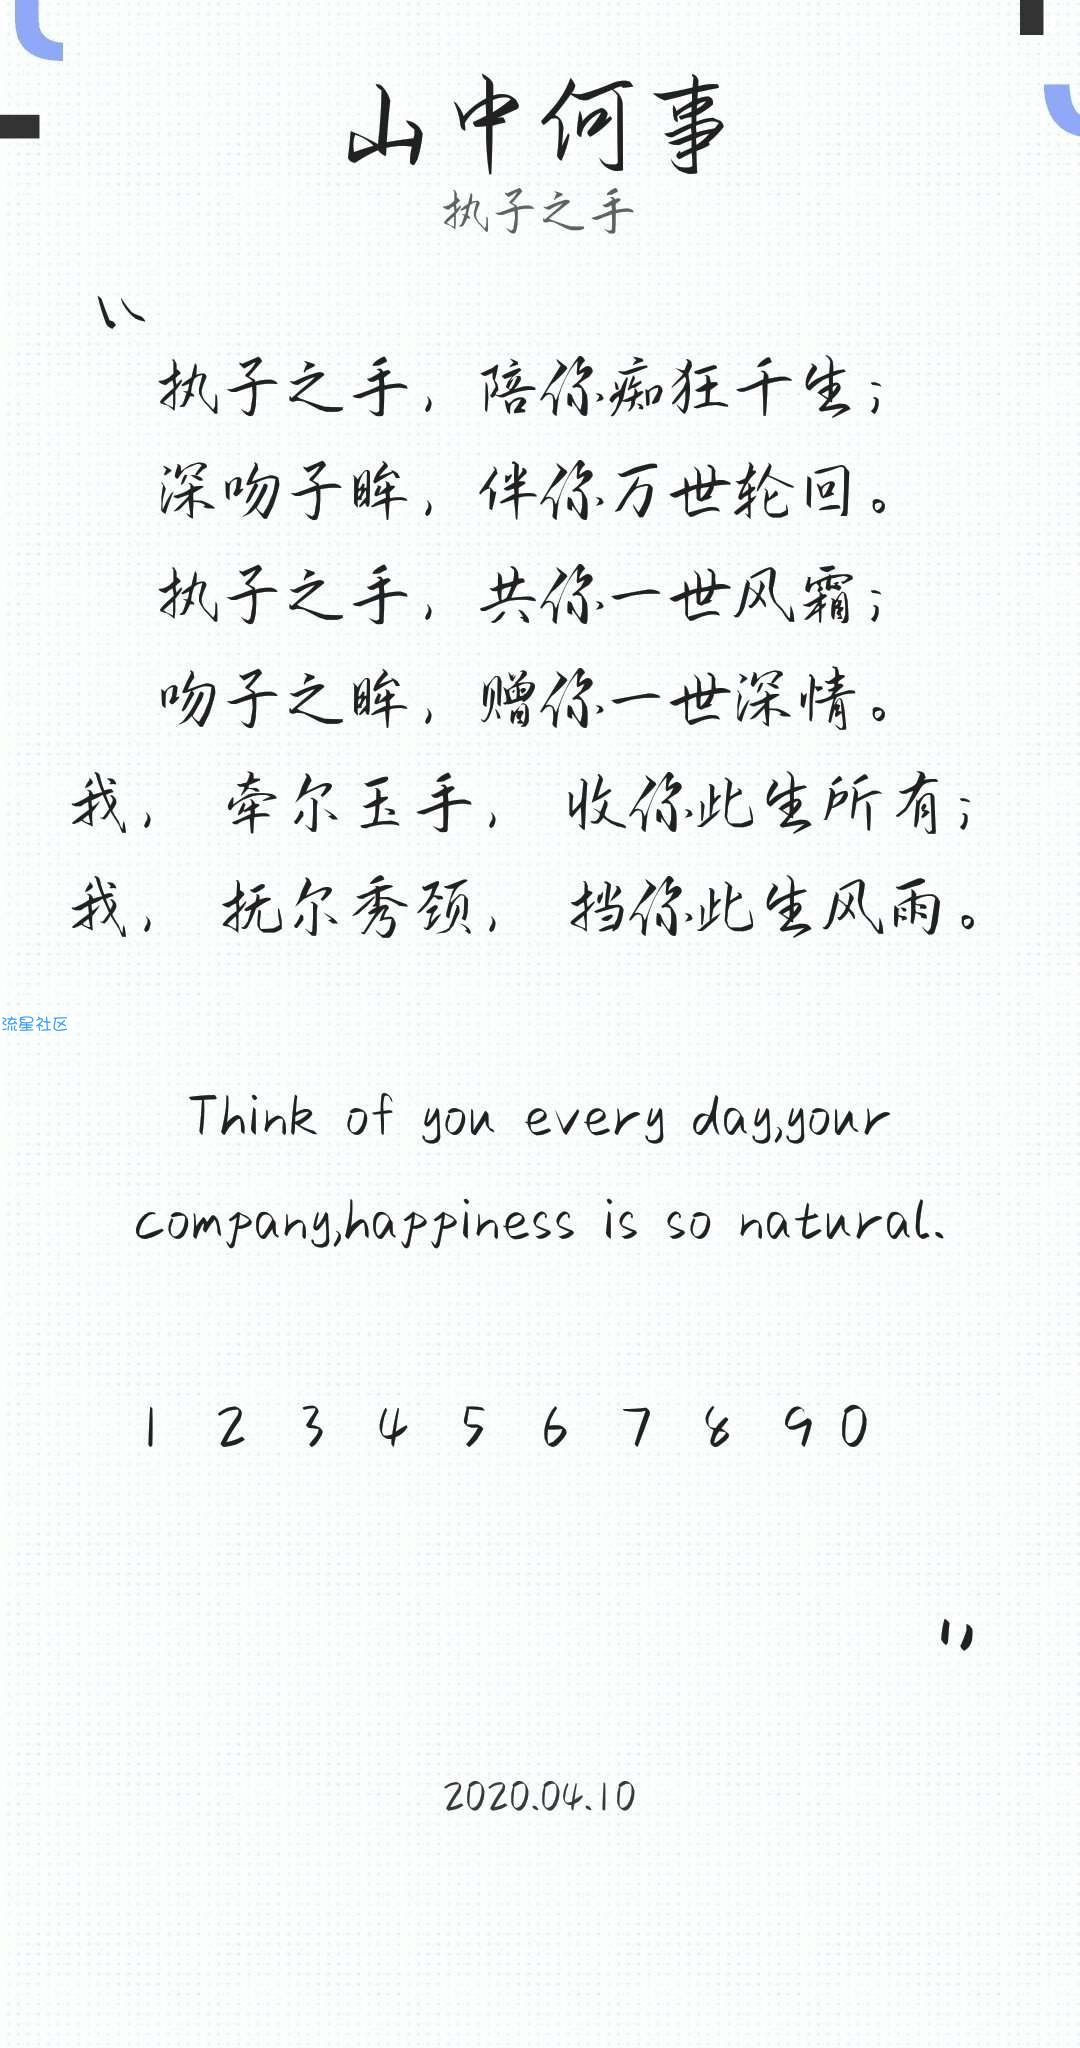 山中何事
执子之手
“
执子之手，陪你痴狂千生；
深吻子眸，伴你万世轮回。
执子之手，共你一世风霜；
吻子之眸，赠你一世深情。
我， 牵尔玉手， 收你此生所有；
我， 抚尔秀颈， 挡你此生风雨。
流星社区
Think of you every day,your
company,happiness is so natural.
1 2 3 4 5 6 7 8 9 0
”
2020.04.10